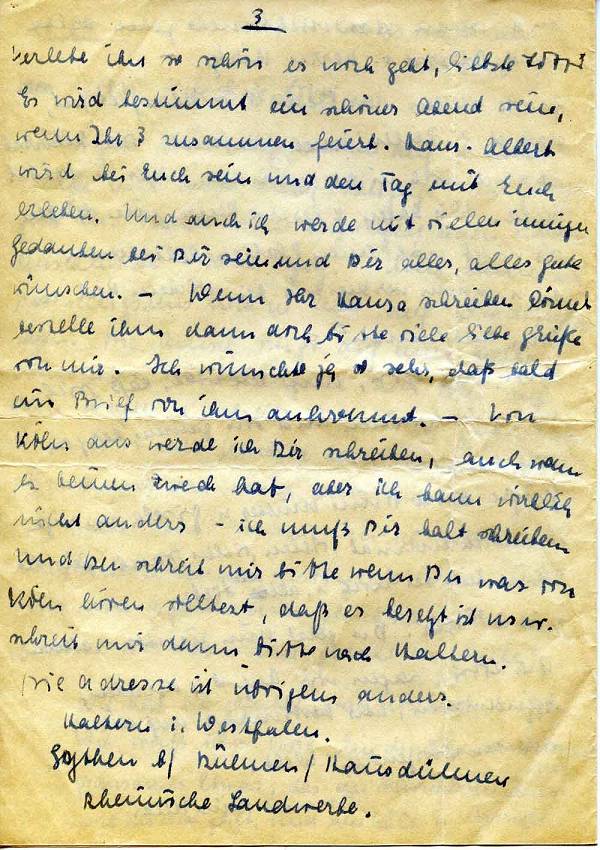 3
verlebe ihn so schön es noch geht, liebste
Es wird bestimmt ein schöner Abend sein,
wenn Ihr 3 zusammen feiert. Hans-Albert
wird bei Euch sein und den Tag mit Euch
erleben. Und auch ich werde mit vielen innigen
Gedanken bei Dir sein und Dir alles, alles gute
wünschen. – Wenn Ihr schreiben könnt
bestelle ihm dann doch bitte viele liebe Grüße
von mir. Ich wünschte ja so sehr, daß bald
ein Brief von ihm ankommt. – Von
Köln aus werde ich Dir schreiben, auch wenn
es keinen Zweck hat, aber ich kann wirklich
nicht anders – ich muß Dir halt schreiben
und Du schreib mir bitte wenn Du was von
Köln hören solltest, daß es besetzt ist usw.
schreib mir dann bitte nach Haltern.
Die Adresse ist übrigens anders.
Haltern i. Westfalen.
b/ Dülmen / Hausdülmen
Rheinische Landwerke.